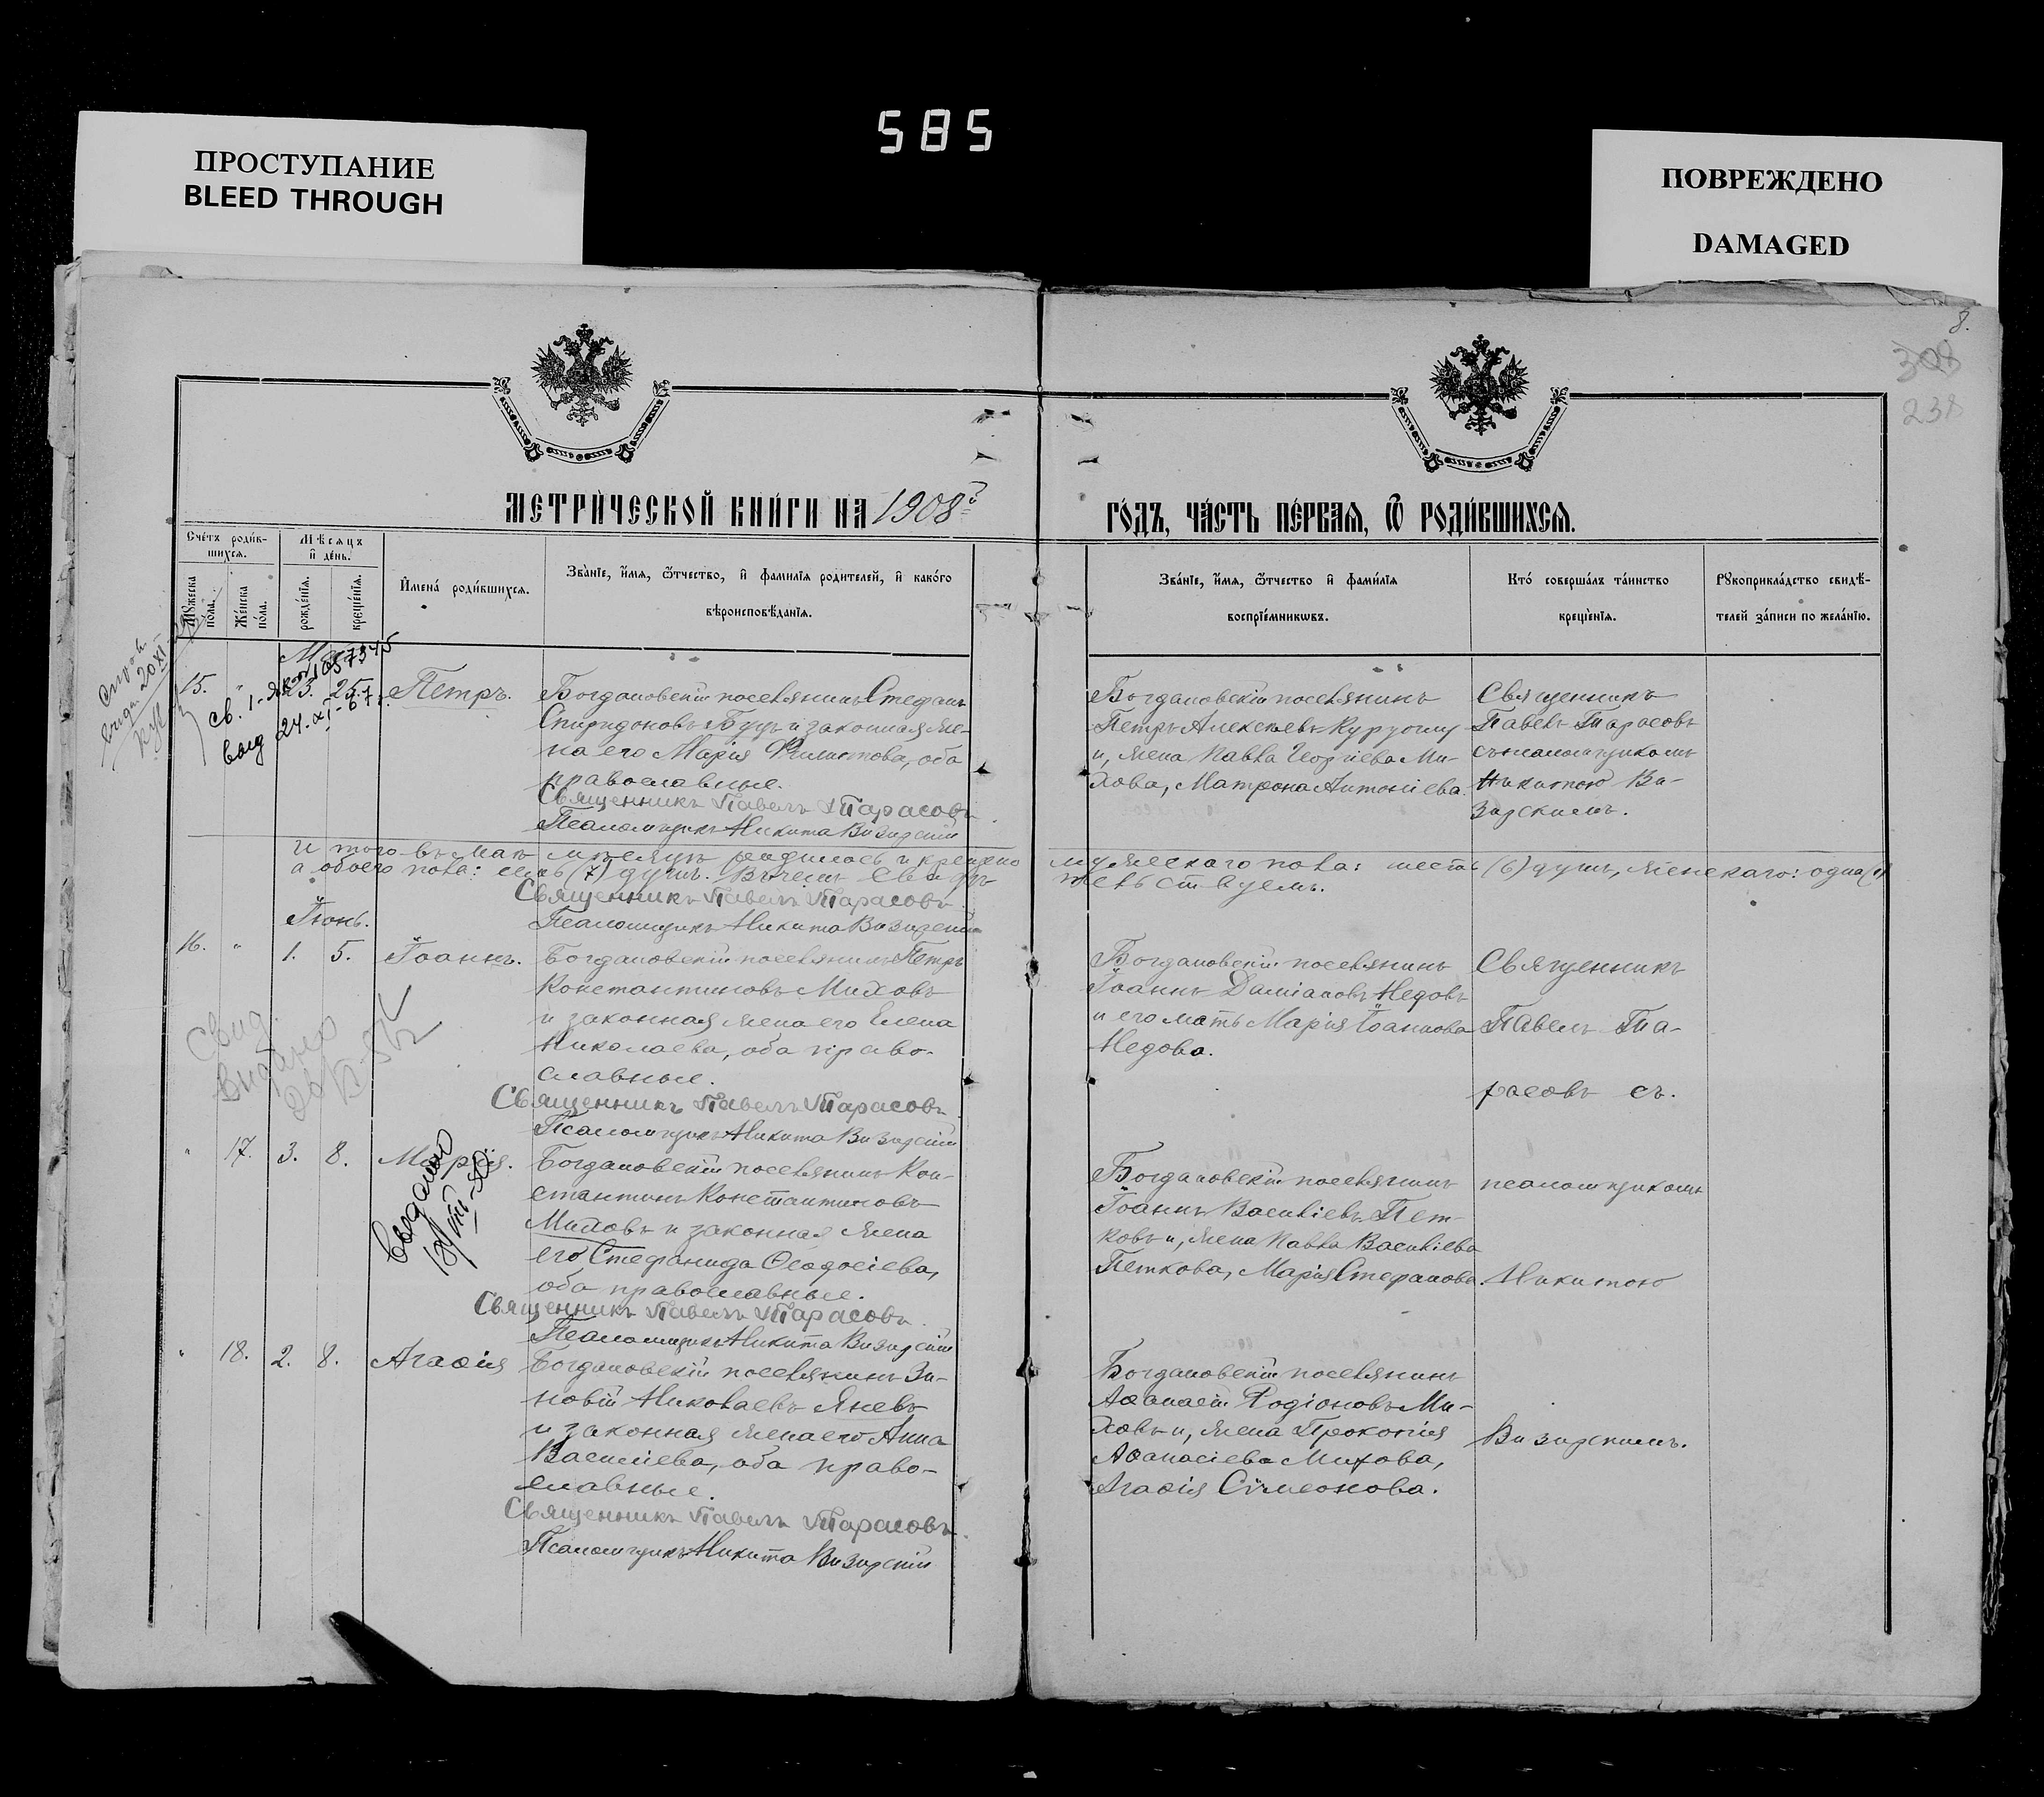 585
ПРОСТУПАНИЕ
BLEED THROUGH
ПОВРЕЖДЕНО
DAMAGED
8.
308
238
МЕТРИ́ЧЕСКОЙ КНИ́ГИ НА 1908й
ГО́ДЪ, ЧА́СТЬ ПЕ́РВАЯ, Ѿ РОДИ́ВШИХСЯ.
Сче́тъ роди́в-
шихся.
Мѣсяцъ
и де́нь.
Мꙋ́жеска
пола.
Же́нска
по́ла.
рожде́нїѧ.
креще́нїѧ.
Имена́ роди́вшихся.
Зва́нїе, и́мѧ, ѻ́тчество, и фами́лїѧ родителей, и како́гѡ
вѣроисповѣ́данїѧ.
Зва́нїе, и́мѧ, ѻ́тчество и фами́лїѧ
воспрїе́мникѡвъ.
Кто́ соверша́лъ та́инство
креще́нїѧ.
Рꙋкоприкла́дство свидѣ́-
телей за́писи по жела́нїю.
15. " 23. 25. Петръ.
Богдановскій поселянинъ Стефанъ
Спиридоновъ Буцъ и законная же-
на его Марія Филиппова, оба
православные.
Священникъ Павелъ Тарасовъ
Псаломщикъ Никита Визирскій
Богдановскій поселянинъ
Петръ Алексѣевъ Куруогпу
и, жена Павла Георгіева Ми-
хова, Матрона Антоніева.
Священникъ
Павелъ Тарасовъ
съ псаломщикомъ
Никитою Ви-
зирскимъ.
Итого въ маѣ мѣсяцѣ родилось и крещено мужескаго пола: шесть (6) душъ, женскаго: одна (1)
а обоего пола: семь (7) душъ. Въ чемъ свидѣ- тельствуемъ.
Священникъ Павелъ Тарасовъ.
Псаломщикъ Никита Визирскій
Іюнь.
16. " 1. 5. Іоаннъ.
Богдановскій поселянинъ Петръ
Константиновъ Миховъ
и законная жена его Елена
Николаева, оба право-
славные.
Священникъ Павелъ Тарасовъ.
Псаломщикъ Никита Визирскій
Богдановскій поселянинъ
Іоаннъ Даміановъ Недовъ
и его мать Марія Іоаннова
Недова.
Священникъ
Павелъ Та-
расовъ съ.
Свид.
выдано
" 17. 3. 8. Марія.
Выдано
Богдановскій поселянинъ Кон-
стантинъ Константиновъ
Миховъ и законная жена
его Стефанида Ѳеодосіева,
оба православные.
Священникъ Павелъ Тарасовъ.
Псаломщикъ Никита Визирскій
Богдановскій поселянинъ
Іоаннъ Василіевъ Пет-
ковъ и, жена Павла Василіева
Петкова, Марія Стефанова.
псаломщикомъ
Никитою
" 18. 2. 8. Агаѳія
Богдановскій поселянинъ Зи-
новій Николаевъ Яневъ
и законная жена его Анна
Василіева, оба право-
славные.
Священникъ Павелъ Тарасовъ.
Псаломщикъ Никита Визирскій
Богдановскій поселянинъ
Аѳанасій Родіоновъ Ми-
ховъ и, жена Прокопія
Аѳанасіева Михова,
Агаѳія Сімеонова.
Визирскимъ.